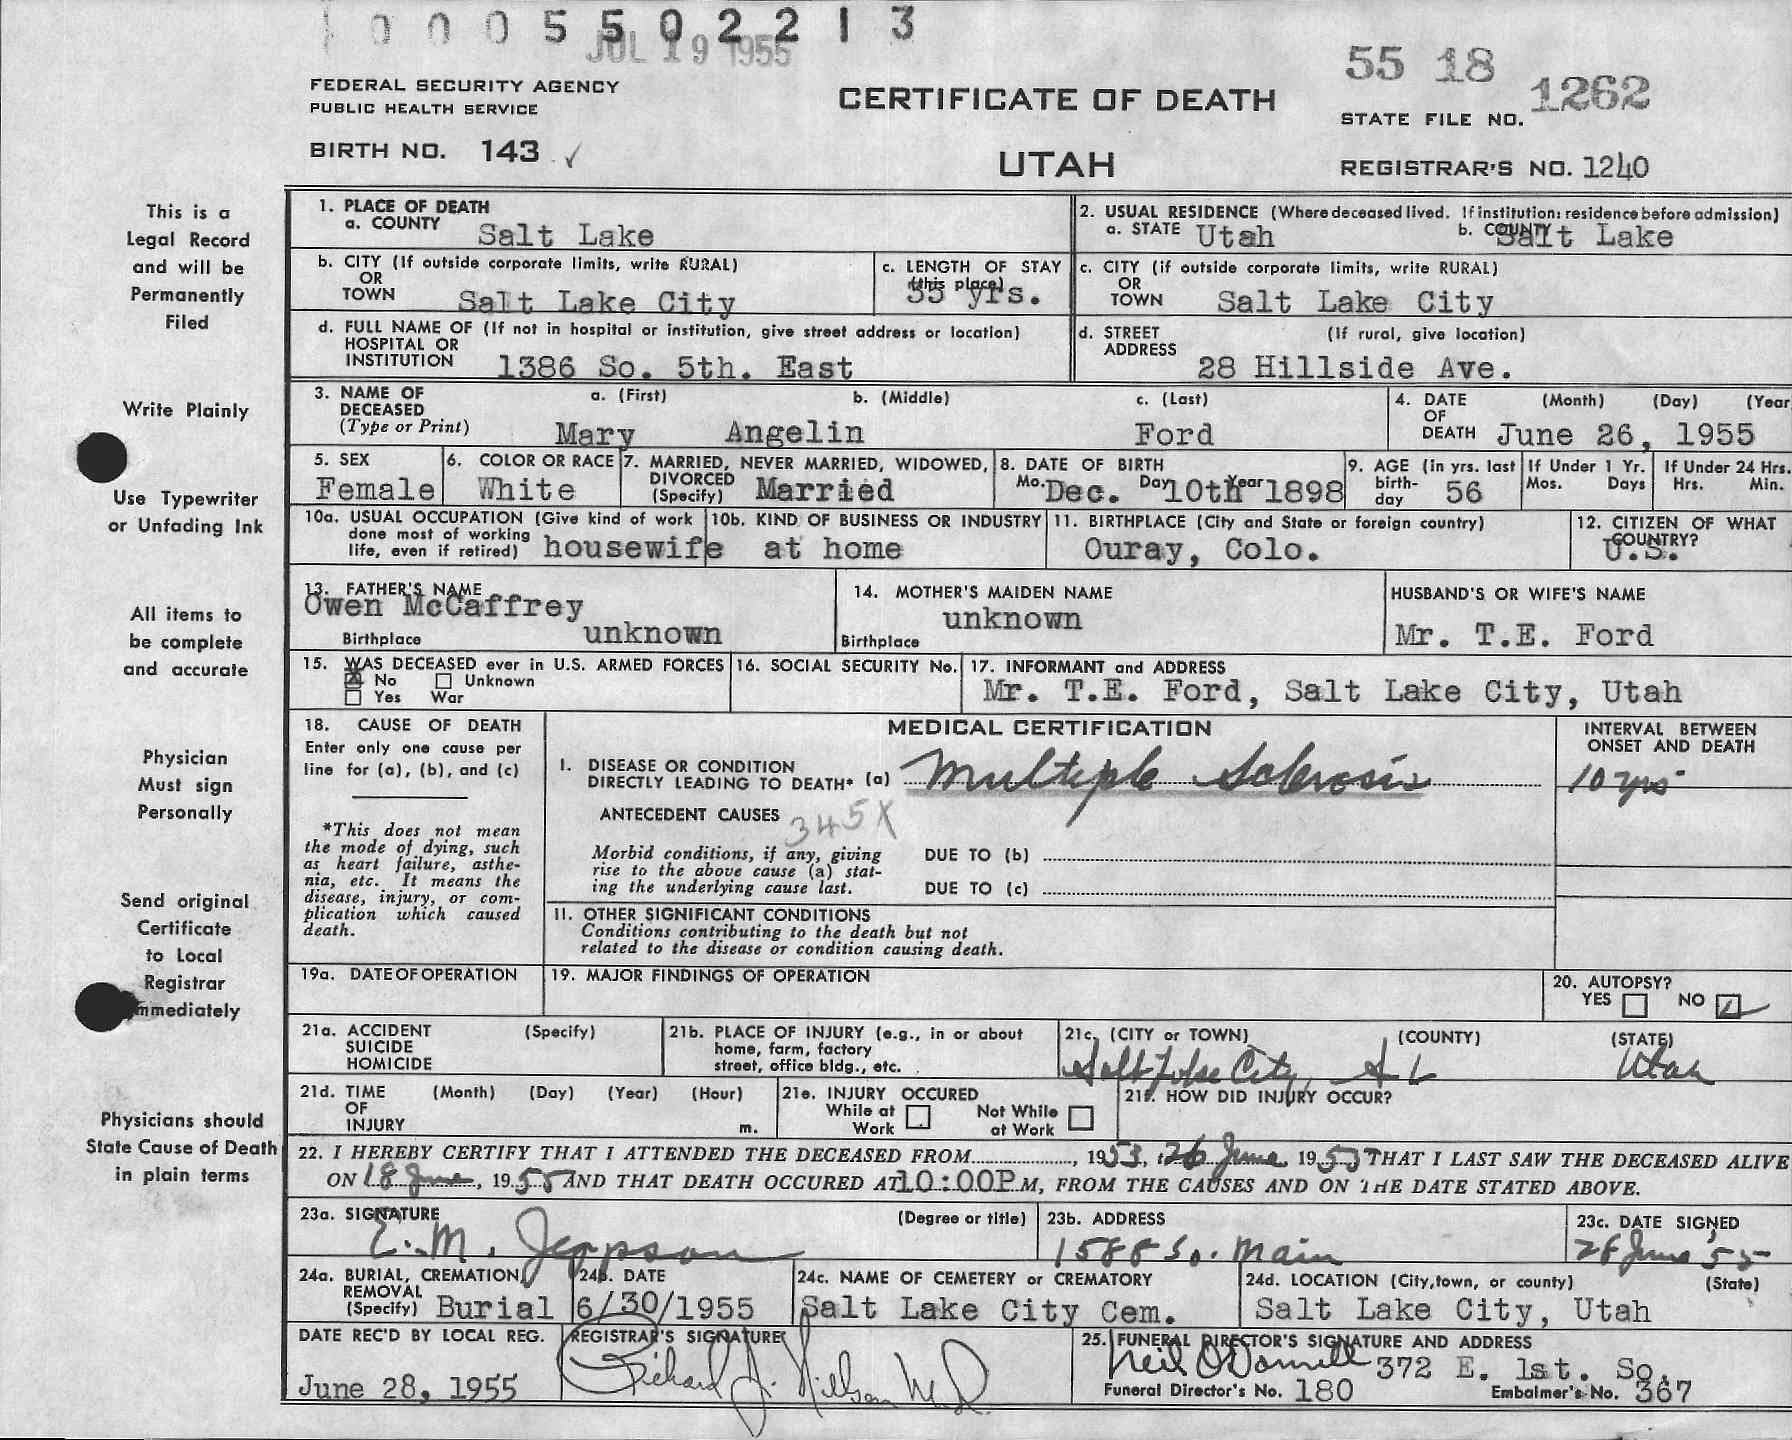 0 0 0 5 5 0 2 2 1 3
JUL 19 1955
55 18
1262
FEDERAL SECURITY AGENCY
PUBLIC HEALTH SERVICE
CERTIFICATE OF DEATH
STATE FILE NO.
BIRTH NO. 143 ✓
UTAH
REGISTRAR'S NO. 1240
This is a
Legal Record
and will be
Permanently
Filed
Write Plainly
Use Typewriter
or Unfading Ink
All items to
be complete
and accurate
Physician
Must sign
Personally
Send original
Certificate
to Local
Registrar
Immediately
Physicians should
State Cause of Death
in plain terms
1. PLACE OF DEATH
a. COUNTY Salt Lake
2. USUAL RESIDENCE (Where deceased lived. If institution: residence before admission)
a. STATE Utah b. COUNTY Salt Lake
b. CITY (If outside corporate limits, write RURAL)
OR
TOWN Salt Lake City
c. LENGTH OF STAY
(this place)
yrs.
c. CITY (if outside corporate limits, write RURAL)
OR
TOWN Salt Lake City
d. FULL NAME OF (If not in hospital or institution, give street address or location)
HOSPITAL OR
INSTITUTION 1386 So. 5th. East
d. STREET (If rural, give location)
ADDRESS
28 Hillside Ave.
3. NAME OF DECEASED
(Type or Print)
a. (First) b. (Middle) c. (Last)
Mary Angelin Ford
4. DATE (Month) (Day) (Year
OF
DEATH June 26, 1955
5. SEX
Female
6. COLOR OR RACE
White
7. MARRIED, NEVER MARRIED, WIDOWED,
DIVORCED
(Specify) Married
8. DATE OF BIRTH
Mo. Dec. Day 10th Year 1898
9. AGE (in yrs. last
birth-
day 56
If Under 1 Yr.
Mos. Days
If Under 24 Hrs.
Hrs. Min.
10a. USUAL OCCUPATION (Give kind of work
done most of working
life, even if retired) housewife
10b. KIND OF BUSINESS OR INDUSTRY
at home
11. BIRTHPLACE (City and State or foreign country)
Ouray, Colo.
12. CITIZEN OF WHAT
COUNTRY?
U.S.
13. FATHER'S NAME
Owen McCaffrey
Birthplace unknown
14. MOTHER'S MAIDEN NAME
unknown
Birthplace
HUSBAND'S OR WIFE'S NAME
Mr. T.E. Ford
15. WAS DECEASED ever in U.S. ARMED FORCES
X No Unknown
Yes War
16. SOCIAL SECURITY No.
17. INFORMANT and ADDRESS
Mr. T.E. Ford, Salt Lake City, Utah
18. CAUSE OF DEATH
Enter only one cause per
line for (a), (b), and (c)
*This does not mean
the mode of dying, such
as heart failure, asthe-
nia, etc. It means the
disease, injury, or com-
plication which caused
death.
MEDICAL CERTIFICATION
I. DISEASE OR CONDITION
DIRECTLY LEADING TO DEATH* (a) Multiple Sclerosis
ANTECEDENT CAUSES 345X
Morbid conditions, if any, giving
rise to the above cause (a) stat-
ing the underlying cause last.
DUE TO (b)
DUE TO (c)
INTERVAL BETWEEN
ONSET AND DEATH
10 yrs
II. OTHER SIGNIFICANT CONDITIONS
Conditions contributing to the death but not
related to the disease or condition causing death.
19a. DATE OF OPERATION
19. MAJOR FINDINGS OF OPERATION
20. AUTOPSY?
YES NO
21a. ACCIDENT (Specify)
SUICIDE
HOMICIDE
21b. PLACE OF INJURY (e.g., in or about
home, farm, factory
street, office bldg., etc.
21c. (CITY or TOWN) (COUNTY) (STATE)
Salt Lake City, S L Utah
21d. TIME (Month) (Day) (Year) (Hour)
OF
INJURY m.
21e. INJURY OCCURED
While at Work
Not While at Work
21f. HOW DID INJURY OCCUR?
22. I HEREBY CERTIFY THAT I ATTENDED THE DECEASED FROM , 1953, 26 June 1955 THAT I LAST SAW THE DECEASED ALIVE
ON 18 June, 1955 AND THAT DEATH OCCURED AT 10:00P M, FROM THE CAUSES AND ON THE DATE STATED ABOVE.
23a. SIGNATURE (Degree or title)
E. M. Jeppson
23b. ADDRESS
1588 So. Main
23c. DATE SIGNED
28 June '55
24a. BURIAL, CREMATION,
REMOVAL
(Specify) Burial
24b. DATE
6/30/1955
24c. NAME OF CEMETERY or CREMATORY
Salt Lake City Cem.
24d. LOCATION (City, town, or county) (State)
Salt Lake City, Utah
DATE REC'D BY LOCAL REG.
June 28, 1955
REGISTRAR'S SIGNATURE
Richard J. M.D.
25. FUNERAL DIRECTOR'S SIGNATURE AND ADDRESS
Neil O'Donnell 372 E. 1st. So.
Funeral Director's No. 180 Embalmer's No. 367